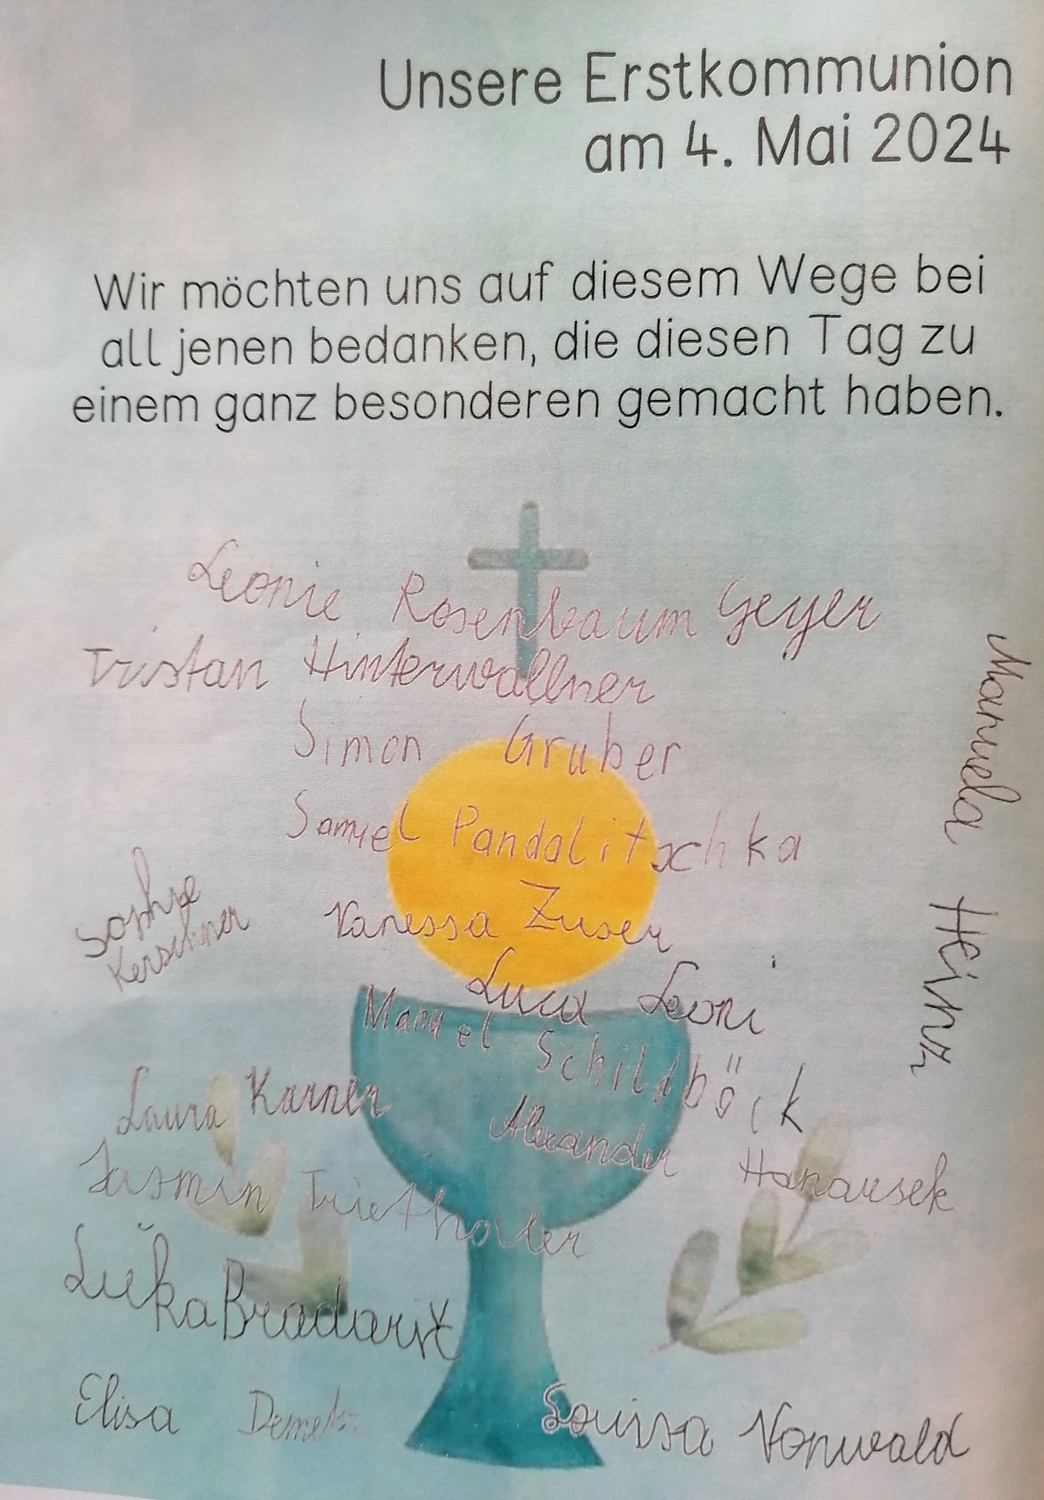 Unsere Erstkommunion
am 4. Mai 2024
Wir möchten uns auf diesem Wege bei
all jenen bedanken, die diesen Tag zu
einem ganz besonderen gemacht haben.
Leonie Rosenbaum Geyer
Tristan Hinterwallner
Simon Gruber
Samuel Pandalitschka
Vanessa Zuser
Sophie
Kerschner
Luca Leoni
Manuel Schildböck
Manuela Heinz
Laura Karner
Alexander Hanausek
Jasmin Triethaler
Luka
Elisa
Louissa Vonwald